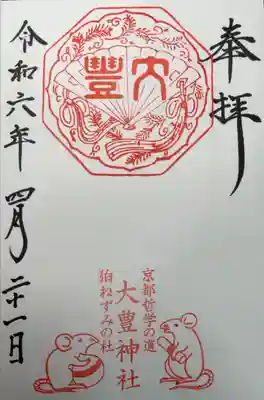 奉拝
大豊
京都哲学の道
大豊神社
狛ねずみの社
令和六年 四月 二十一日